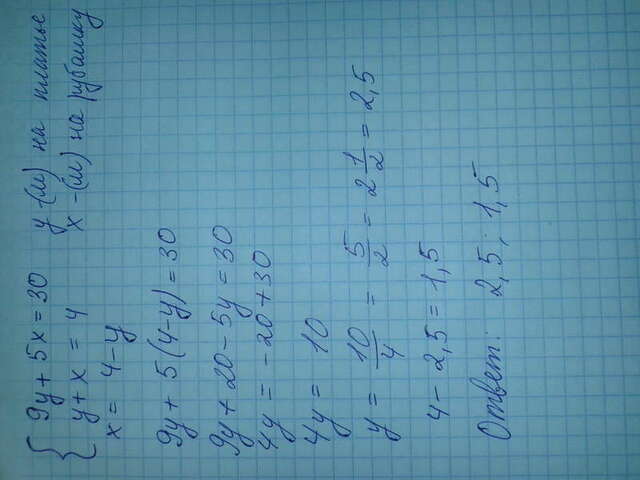 9y + 5x = 30 y -(м) на платье
y + x = 4 x -(м) на рубашку
x = 4 - y
9y + 5(4-y) = 30
9y + 20 - 5y = 30
4y = -20 + 30
4y = 10
y = 10/4 = 5/2 = 2 1/2 = 2,5
4 - 2,5 = 1,5
Ответ: 2,5; 1,5